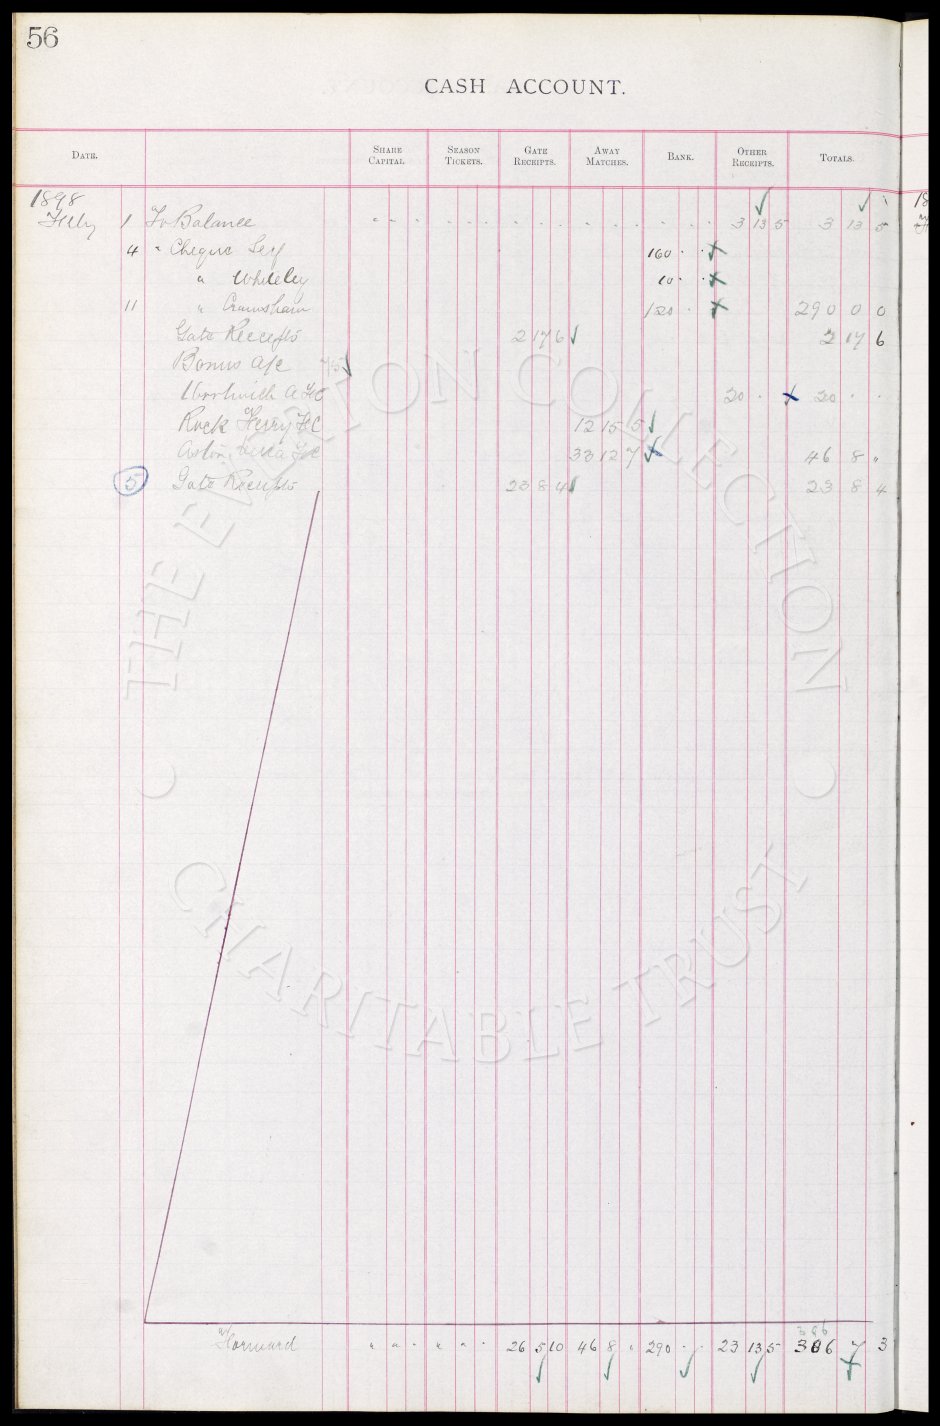 56
CASH ACCOUNT.
DATE. SHARE CAPITAL SEASON TICKETS. GATE RECEIPTS. AWAY MATCHES. BANK. OTHER RECEIPTS. TOTALS.
1898
Feby 1 To Balance 3 13 5 3 13 5
4 " Cheque Self 160 . .
" Whiteley 10 . .
11 " Crawshaw 120 . . 290 0 0
Gate Receipts 2 17 6 2 17 6
Bonus a/c
Woolwich A FC 20 . . 20 . .
Rock Ferry FC 12 15 5
Aston Villa FC 33 12 7 46 8 "
5 Gate Receipts 23 8 4 23 8 4
Forward " " . " " . 26 5 10 46 8 " 290 . . 23 13 5 386 7 3
386
THE EVERTON COLLECTION
CHARITABLE TRUST